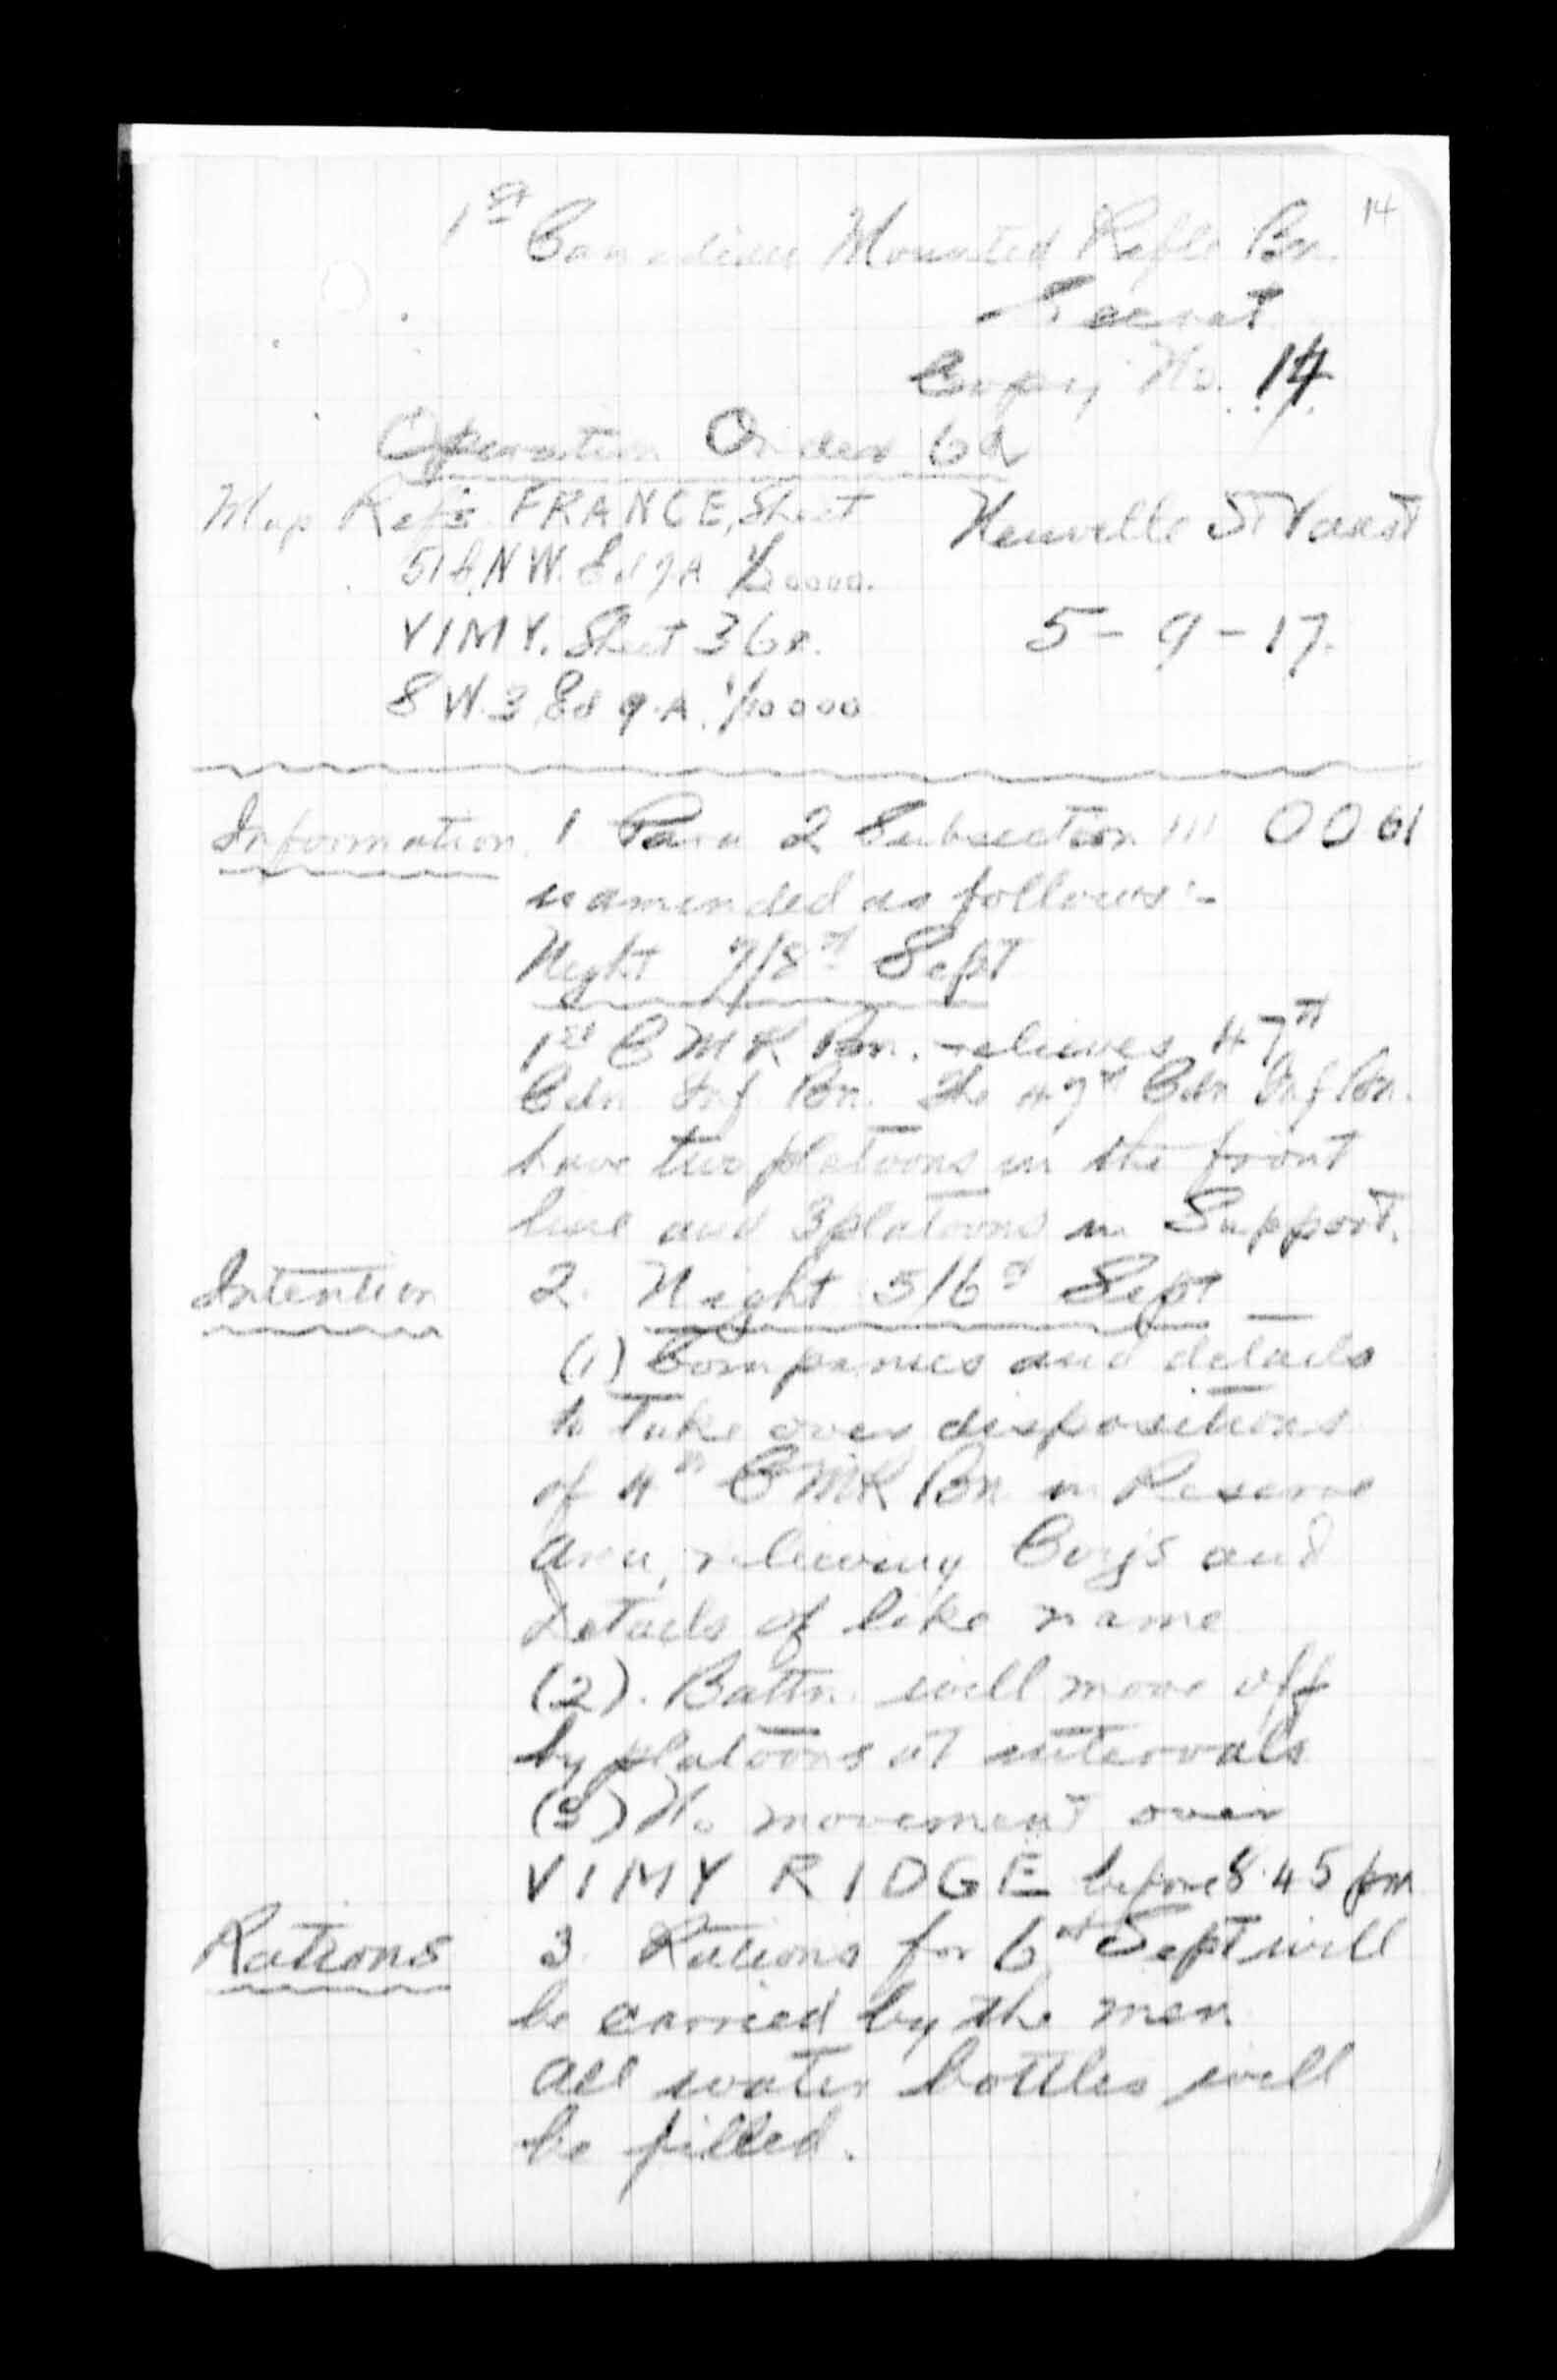 14
1st Canadian Mounted Rifle Bn.
Secret
Copy No. 14
Operation Order 62
Map Refs FRANCE, Sheet
Neuville St Vaast
51b N.W. Ed 7A 1/20000.
VIMY. Sheet 36c.
5-9-17.
S W. 3 Ed 9.A. 1/10000
Information. 1 Para 2 Subsection III OO 61
is amended as follows:-
Night 7/8th Sept
1st C M R Bn. relieves 47th
Cdn Inf Bn. The 47th Cdn Inf Bn.
have two platoons in the front
line and 3 platoons in Support.
Intention 2. Night 5/6th Sept
(1) Companies and details
to take over dispositions
of 4th CMR Bn in Reserve
Area, relieving Coys and
Details of like name
(2). Battn. will move off
by platoons at intervals
(3) No movement over
VIMY RIDGE before 8.45 pm
Rations 3. Rations for 6th Sept will
be carried by the men.
All water bottles will
be filled.